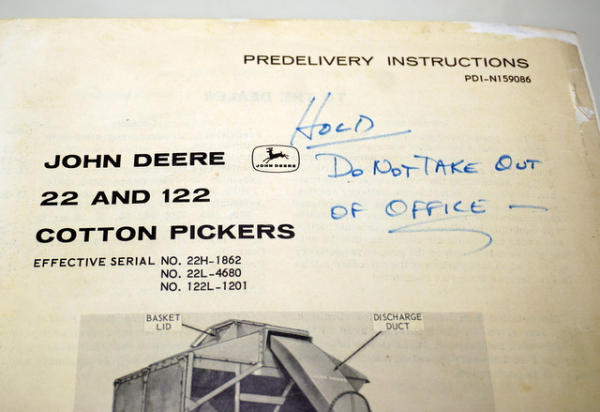 PREDELIVERY INSTRUCTIONS
PDI-N159086
HOLD
DO NOT TAKE OUT
OF OFFICE —
JOHN DEERE
JOHN DEERE
22 AND 122
COTTON PICKERS
EFFECTIVE SERIAL NO. 22H-1862
NO. 22L-4680
NO. 122L-1201
BASKET
LID
DISCHARGE
DUCT